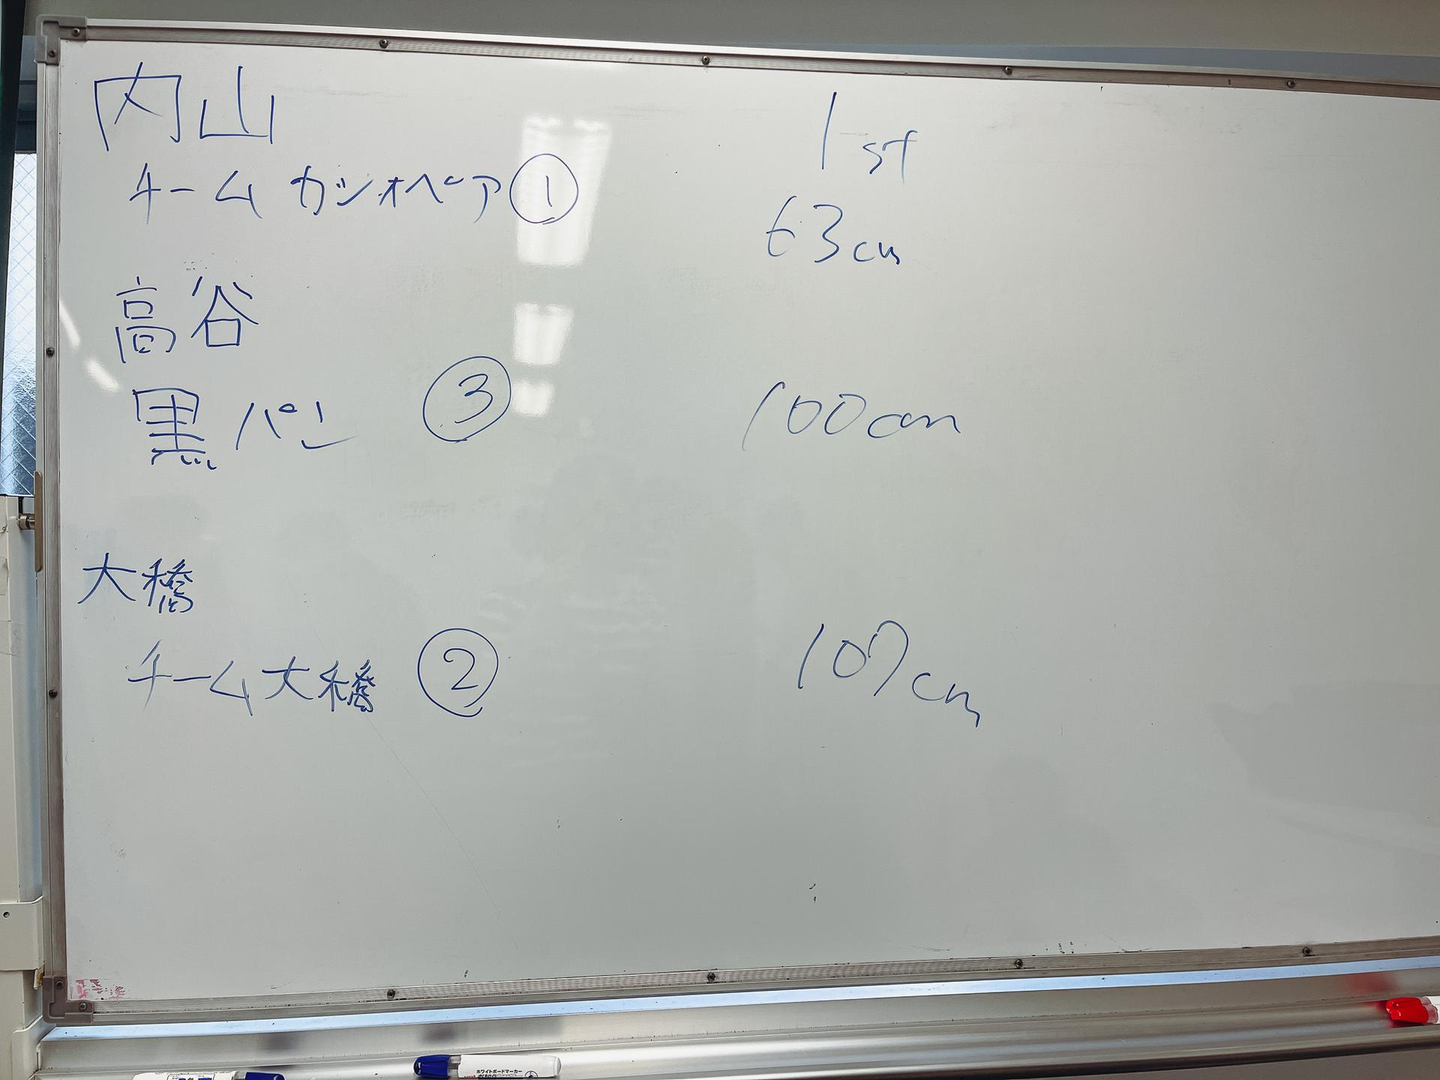 内山
1st
チームカシオペア①
63cm
高谷
黒パン ③
100cm
大橋
チーム大橋 ②
107cm
ホワイトボードマーカー